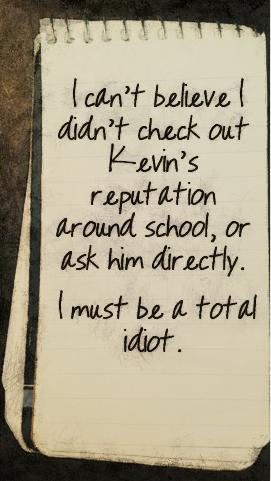 I can't believe I
didn't check out
Kevin's
reputation
around school, or
ask him directly.
I must be a total
idiot.